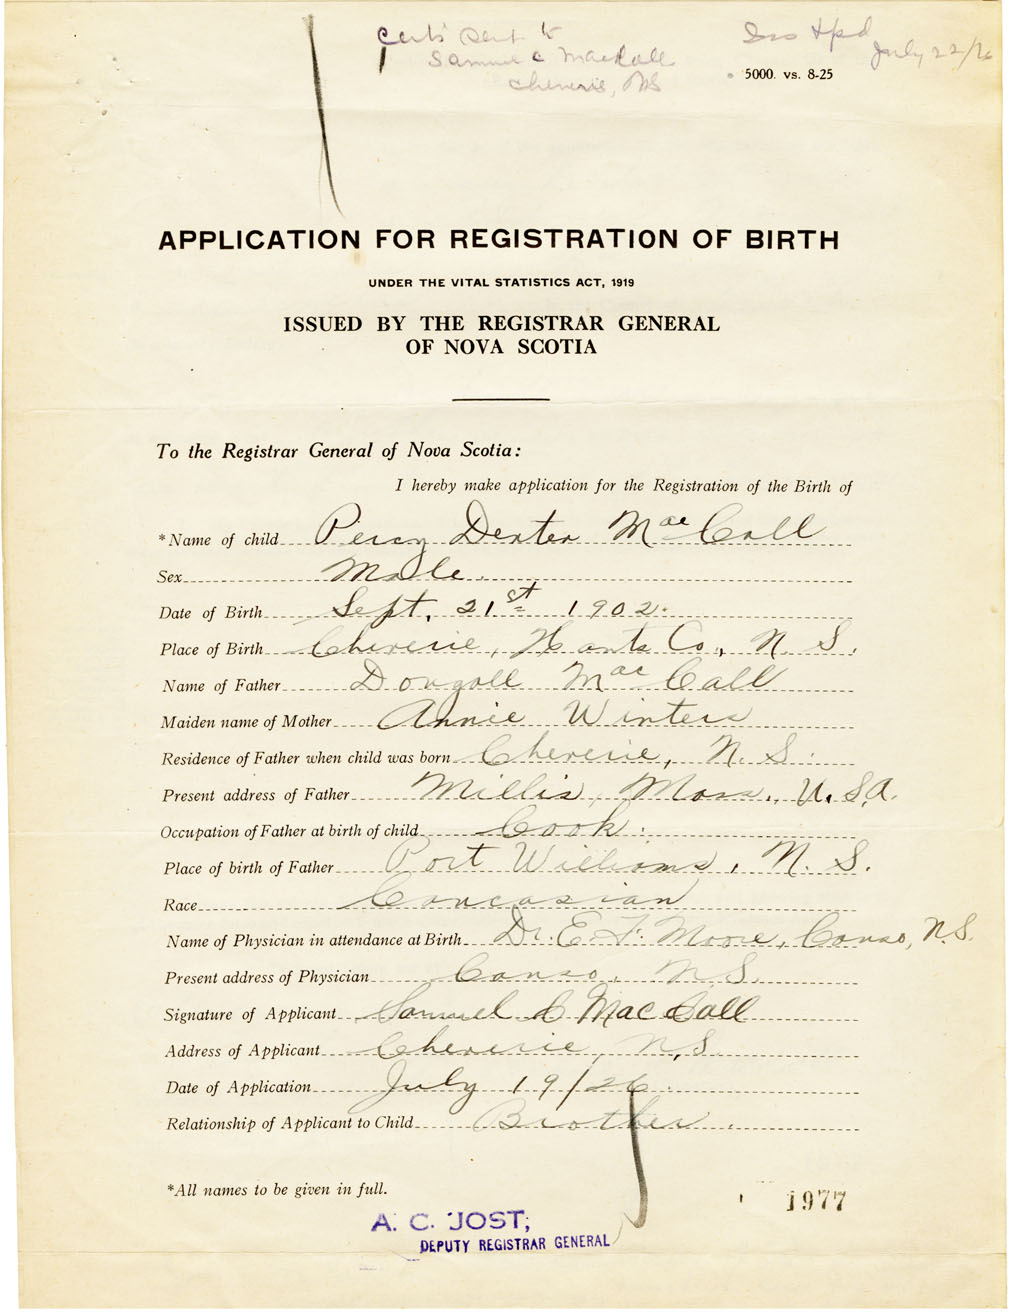 Cert sent to
Samuel C MacCall
Cheverie, NS
July 22/26
5000. vs. 8-25
APPLICATION FOR REGISTRATION OF BIRTH
UNDER THE VITAL STATISTICS ACT, 1919
ISSUED BY THE REGISTRAR GENERAL
OF NOVA SCOTIA
To the Registrar General of Nova Scotia:
I hereby make application for the Registration of the Birth of
*Name of child Percy Dexter MacCall
Sex Male
Date of Birth Sept. 21st 1902.
Place of Birth Cheverie, Hants Co., N. S.
Name of Father Dougall MacCall
Maiden name of Mother Annie Winters
Residence of Father when child was born Cheverie, N. S.
Present address of Father Millis, Mass., U.S.A.
Occupation of Father at birth of child Cook.
Place of birth of Father Port Williams, N. S.
Race Caucasian
Name of Physician in attendance at Birth Dr. E. F. Moore, Canso, N.S.
Present address of Physician Canso, N.S.
Signature of Applicant Samuel C MacCall
Address of Applicant Cheverie, N.S.
Date of Application July 19/26.
Relationship of Applicant to Child Brother.
*All names to be given in full.
1977
A. C. JOST,
DEPUTY REGISTRAR GENERAL